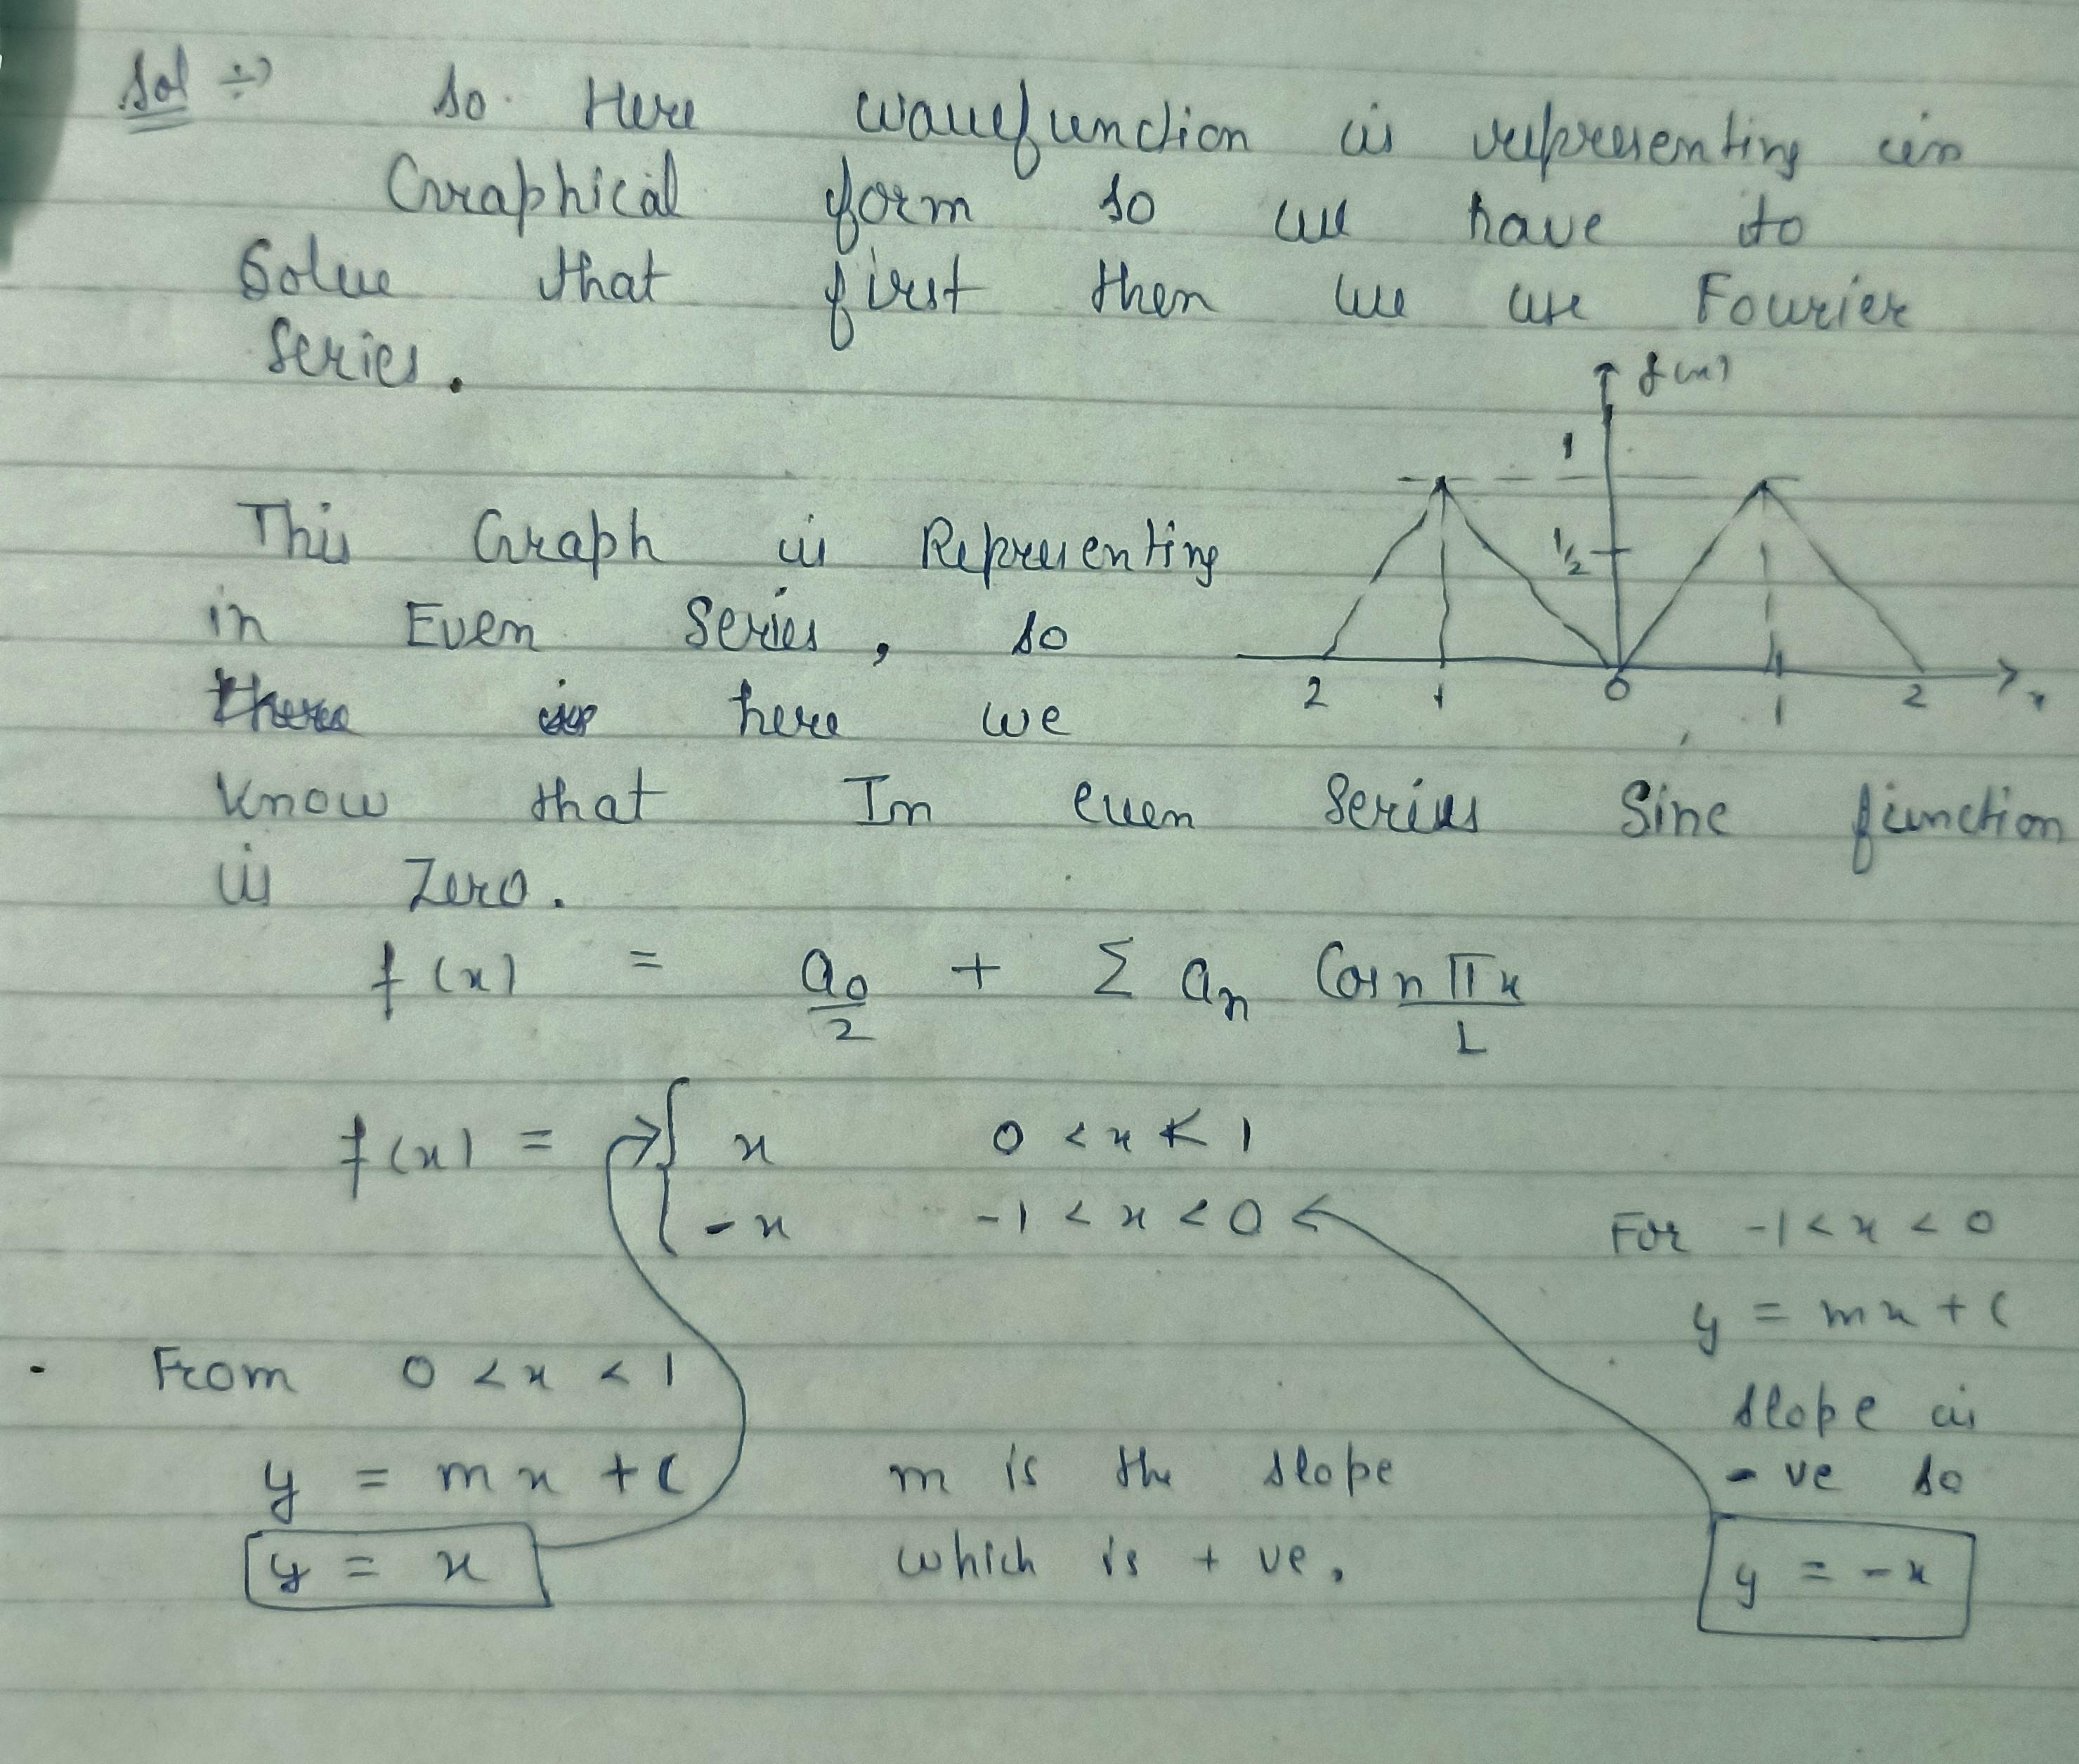 Sol ÷> So Here wavefunction is representing in
Graphical form so we have to
Solve that first then we use Fourier
Series.
f(x)
1
1/2
2 1 0 1 2 x
This Graph is Representing
in Even Series, so
here we
Know that In even Series Sine function
is Zero.
f(x) = a0/2 + Σ an Cos nπx/L
f(x) = { x 0 < x < 1
-x -1 < x < 0
For -1 < x < 0
y = mx + c
slope is
-ve so
y = -x
From 0 < x < 1
y = mx + c m is the slope
y = x which is +ve.